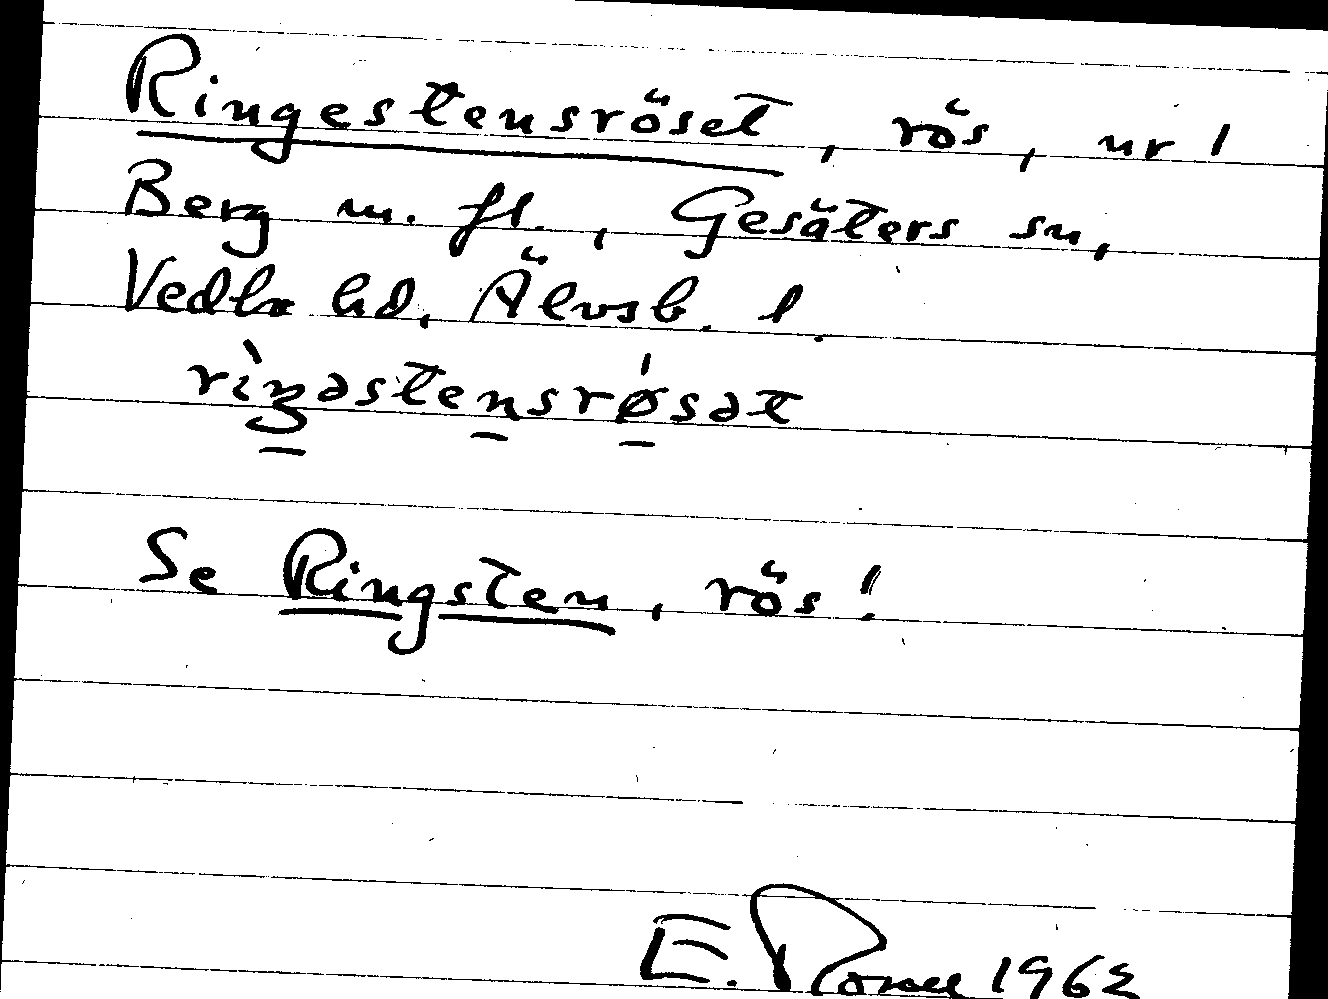 Ringestensröset, rös, nr 1
Berg m. fl., Gesäters sn,
Vedbo hd, Älvsb. l.
rìŋəstensrǿsət
Se Ringsten, rös!
E. 1962